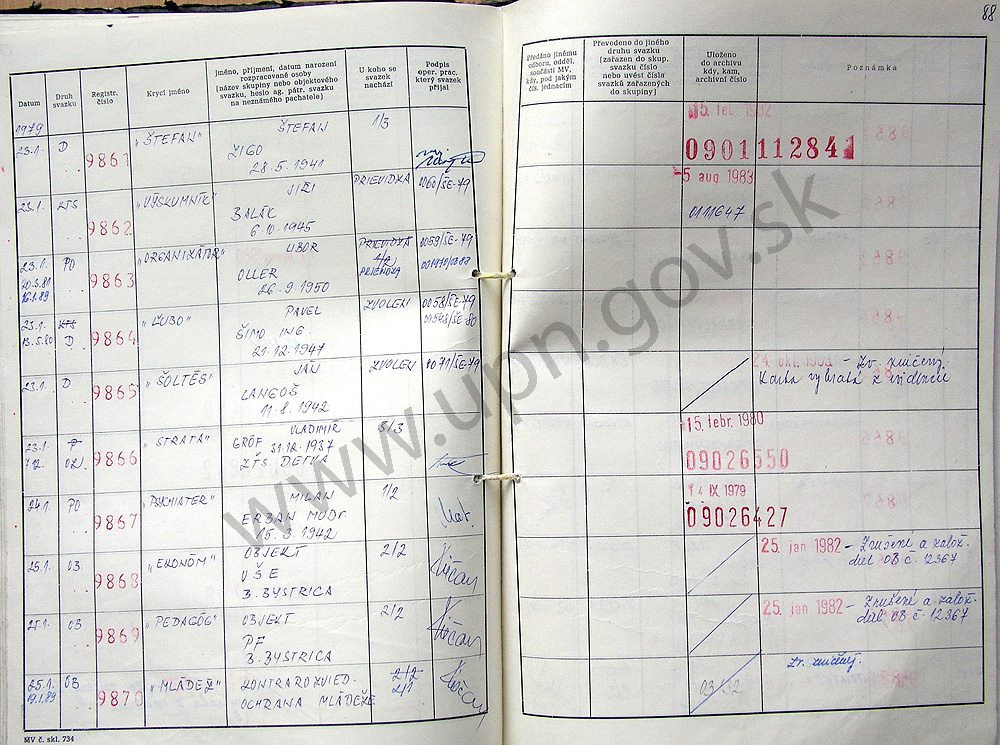 88
Datum
Druh svazku
Registr. číslo
Krycí jméno
Jméno, příjmení, datum narození
rozpracované osoby
(název skupiny nebo objektového
svazku, heslo ag. pátr. svazku
na neznámého pachatele)
U koho se
svazek
nachází
Podpis
oper. prac.
který svazek
přijal
Předáno jinému
odboru, odděl.
součásti MV,
kdy, pod jakým
čís. jednacím
Převedeno do jiného
druhu svazku
(zařazen do skup.
svazku číslo
nebo uvést čísla
svazků zařazených
do skupiny)
Uloženo
do archivu
kdy, kam,
archivní číslo
Poznámka
1979
23.1. D 9861 "ŠTEFAN" ŠTEFAN 1/3
ŽIGO
28.5.1941
15. feb 1982
090111284
23.1. KTS 9862 "VÝSKUMNÍK" JIŘI PRIEVIDZA 0060/ŠE-79
BALÁK
6.10.1945
-5 aug 1983
0111647
23.1. PO 9863 "ORGANIZÁTOR" ĽUBOR PRIEVIDZA 0059/ŠE-79
OLLER
26.9.1950
PRIEVIDZA
23.1. KTS 9864 "ĽUBO" PAVEL ZVOLEN 0058/ŠE-79
13.5.80 D ŠIMO ING.
21.12.1947
23.1. D 9865 "ŠOLTÉS" JÁN ZVOLEN 0071/ŠE-79
LANGOŠ
11.8.1942
24. okt. 1983 - Zv. zničený.
Karta vybratá z evidencie
23.1. 9866 "STRATA" VLADIMÍR 5/3
7.12. GRÓF 31.12.1937
ZŤS DETVA
15. febr. 1980
09026550
24.1. PO 9867 "PSYCHIATER" MILAN 1/2
ERBAN MUDr.
15.3.1942
14 IX 1979
09026427
25.1. OB 9868 "EKONÓM" OBJEKT 2/2
VŠE
B. BYSTRICA
25. jan 1982 - Zrušené a založ.
ďal OB č. 12367
25.1. OB 9869 "PEDAGÓG" OBJEKT 2/2
PF
B. BYSTRICA
25. jan. 1982 - Zrušené a založ.
ďal OB č. 12367
25.1. OB 9870 "MLÁDEŽ" KONTRAROZVIED. 2/2
19.1.89 OCHRANA MLÁDEŽE 2/1
Zv. zničený.
03/92
MV č. skl. 734
www.upn.gov.sk